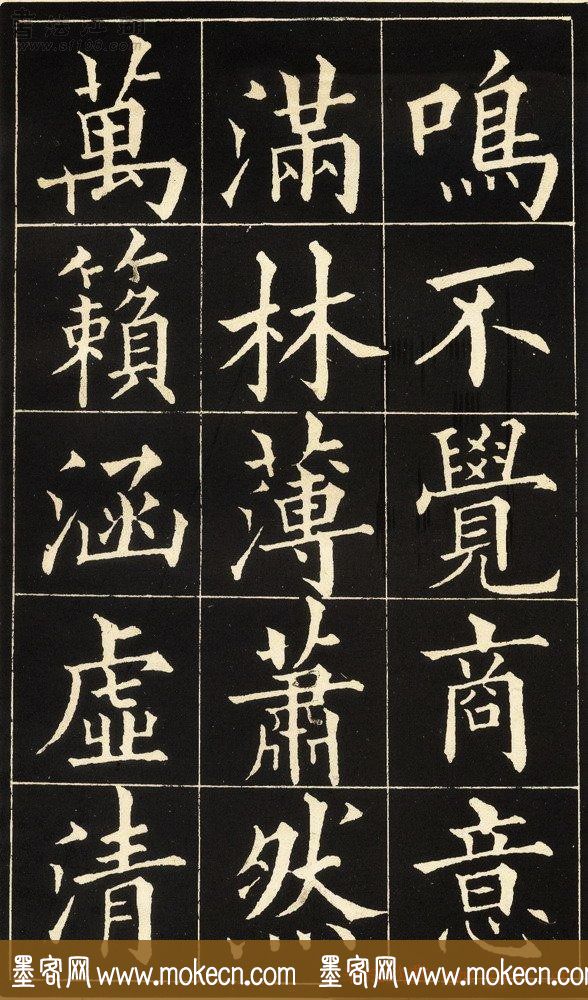 鳴不覺商意
滿林薄蕭然
萬籟涵虛清
墨客网 www.mokecn.com 墨客网 www.mokecn.com